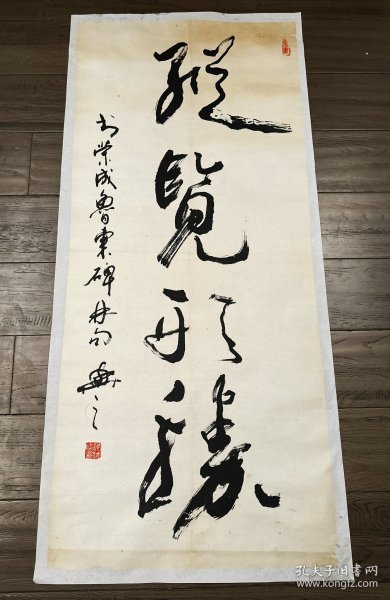 縱覽形勝
书荣成鲁东碑林句
孔夫子旧书网
www.kongfz.com